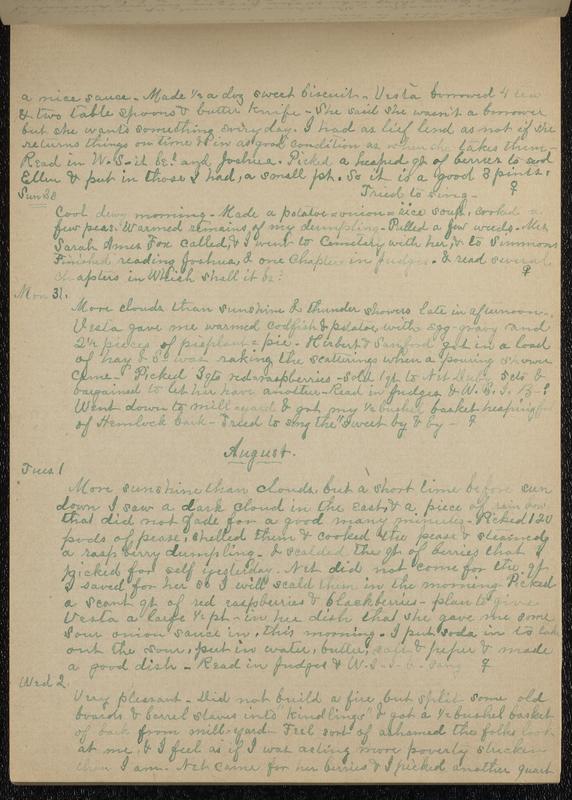 a nice sauce - Made ½ a doz sweet biscuit - Vesta borrowed 4 tea
& two table spoons & butter knife - She said she wasn't a borrower
but she wants something every day. I had as lief lend as not if she
returns things on time & in as good condition as when she takes them -
Read in W. S. it be? and Joshua. Picked a heaped qt of berries to send
Ellen & put in those I had, a small pt. So it is a good 3 pints.
Tried to sing - ♀
Sun 30
Cool dewy morning - Made a potatoe = onion = rice soup, cooked a
few peas. Warmed remains of my dumpling - Pulled a few weeds - Mrs
Sarah Ames Fox called, & I went to Cemetery with her, & to Simmons
Finished reading Joshua, & one Chapter in Judges - & read several
chapters in Which shall it be? ♀
Mon 31.
More clouds than sunshine & thunder showers late in afternoon -
Vesta gave me warmed codfish & potatoe, with egg-gravy and
2½ pieces of pieplant = pie - Herbert & Sanford got in a load
of hay & was raking the scatterings when a pouring shower
came - Picked 3 qts red = raspberries - Sold 1 qt to Net 5cts &
bargained to let her have another - Read in Judges & W. S. I. B -
Went down to mill = yard & got my ½ bushel basket heaping full
of Hemlock bark - Tried to sing the "Sweet by & by" - ♀
August.
Tues. 1
More sunshine than clouds, but a short time before sun
down I saw a dark cloud in the east, & a piece of rain bow
that did not fade for a good many minutes - Picked 120
pods of pease, shelled them & cooked the pease & steamed
a raspberry dumpling - & scalded the qt of berries that I
picked for self yesterday. Net did not come for the qt
I saved for her so I will scald them in the morning Picked
a scant qt of red raspberries & blackberries - plan to give
Vesta a large ½ pt - in her dish that she gave me some
sour onion sauce in, this morning - I put soda in to take
out the sour, put in water, butter, salt & pepper & made
a good dish - Read in Judges & W. S. I. B. Sang ♀
Wed 2.
Very pleasant - Did not build a fire, but split some old
boards & barrel staves into "kindlings" & got a ½ bushel basket
of bark from mill = yard - Feel sort of ashamed the folks look
at me, & I feel as if I was acting more poverty stricken
than I am - Net came for her berries & I picked another quart